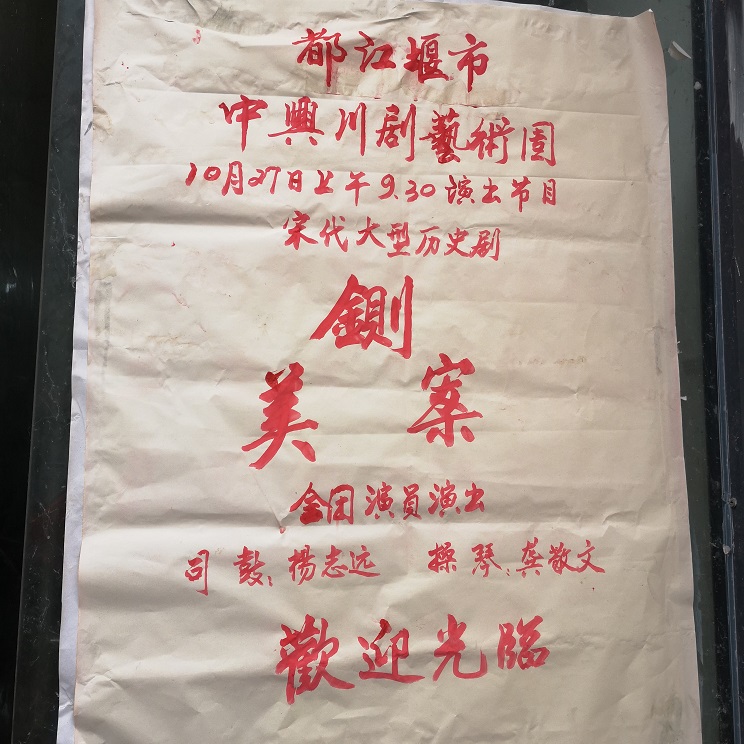 都江堰市
中興川剧藝術团
10月27日上午9.30演出节目
宋代大型历史剧
鍘
美 案
全团演員演出
司鼓:楊志远 操琴:龚敬文
歡迎光臨